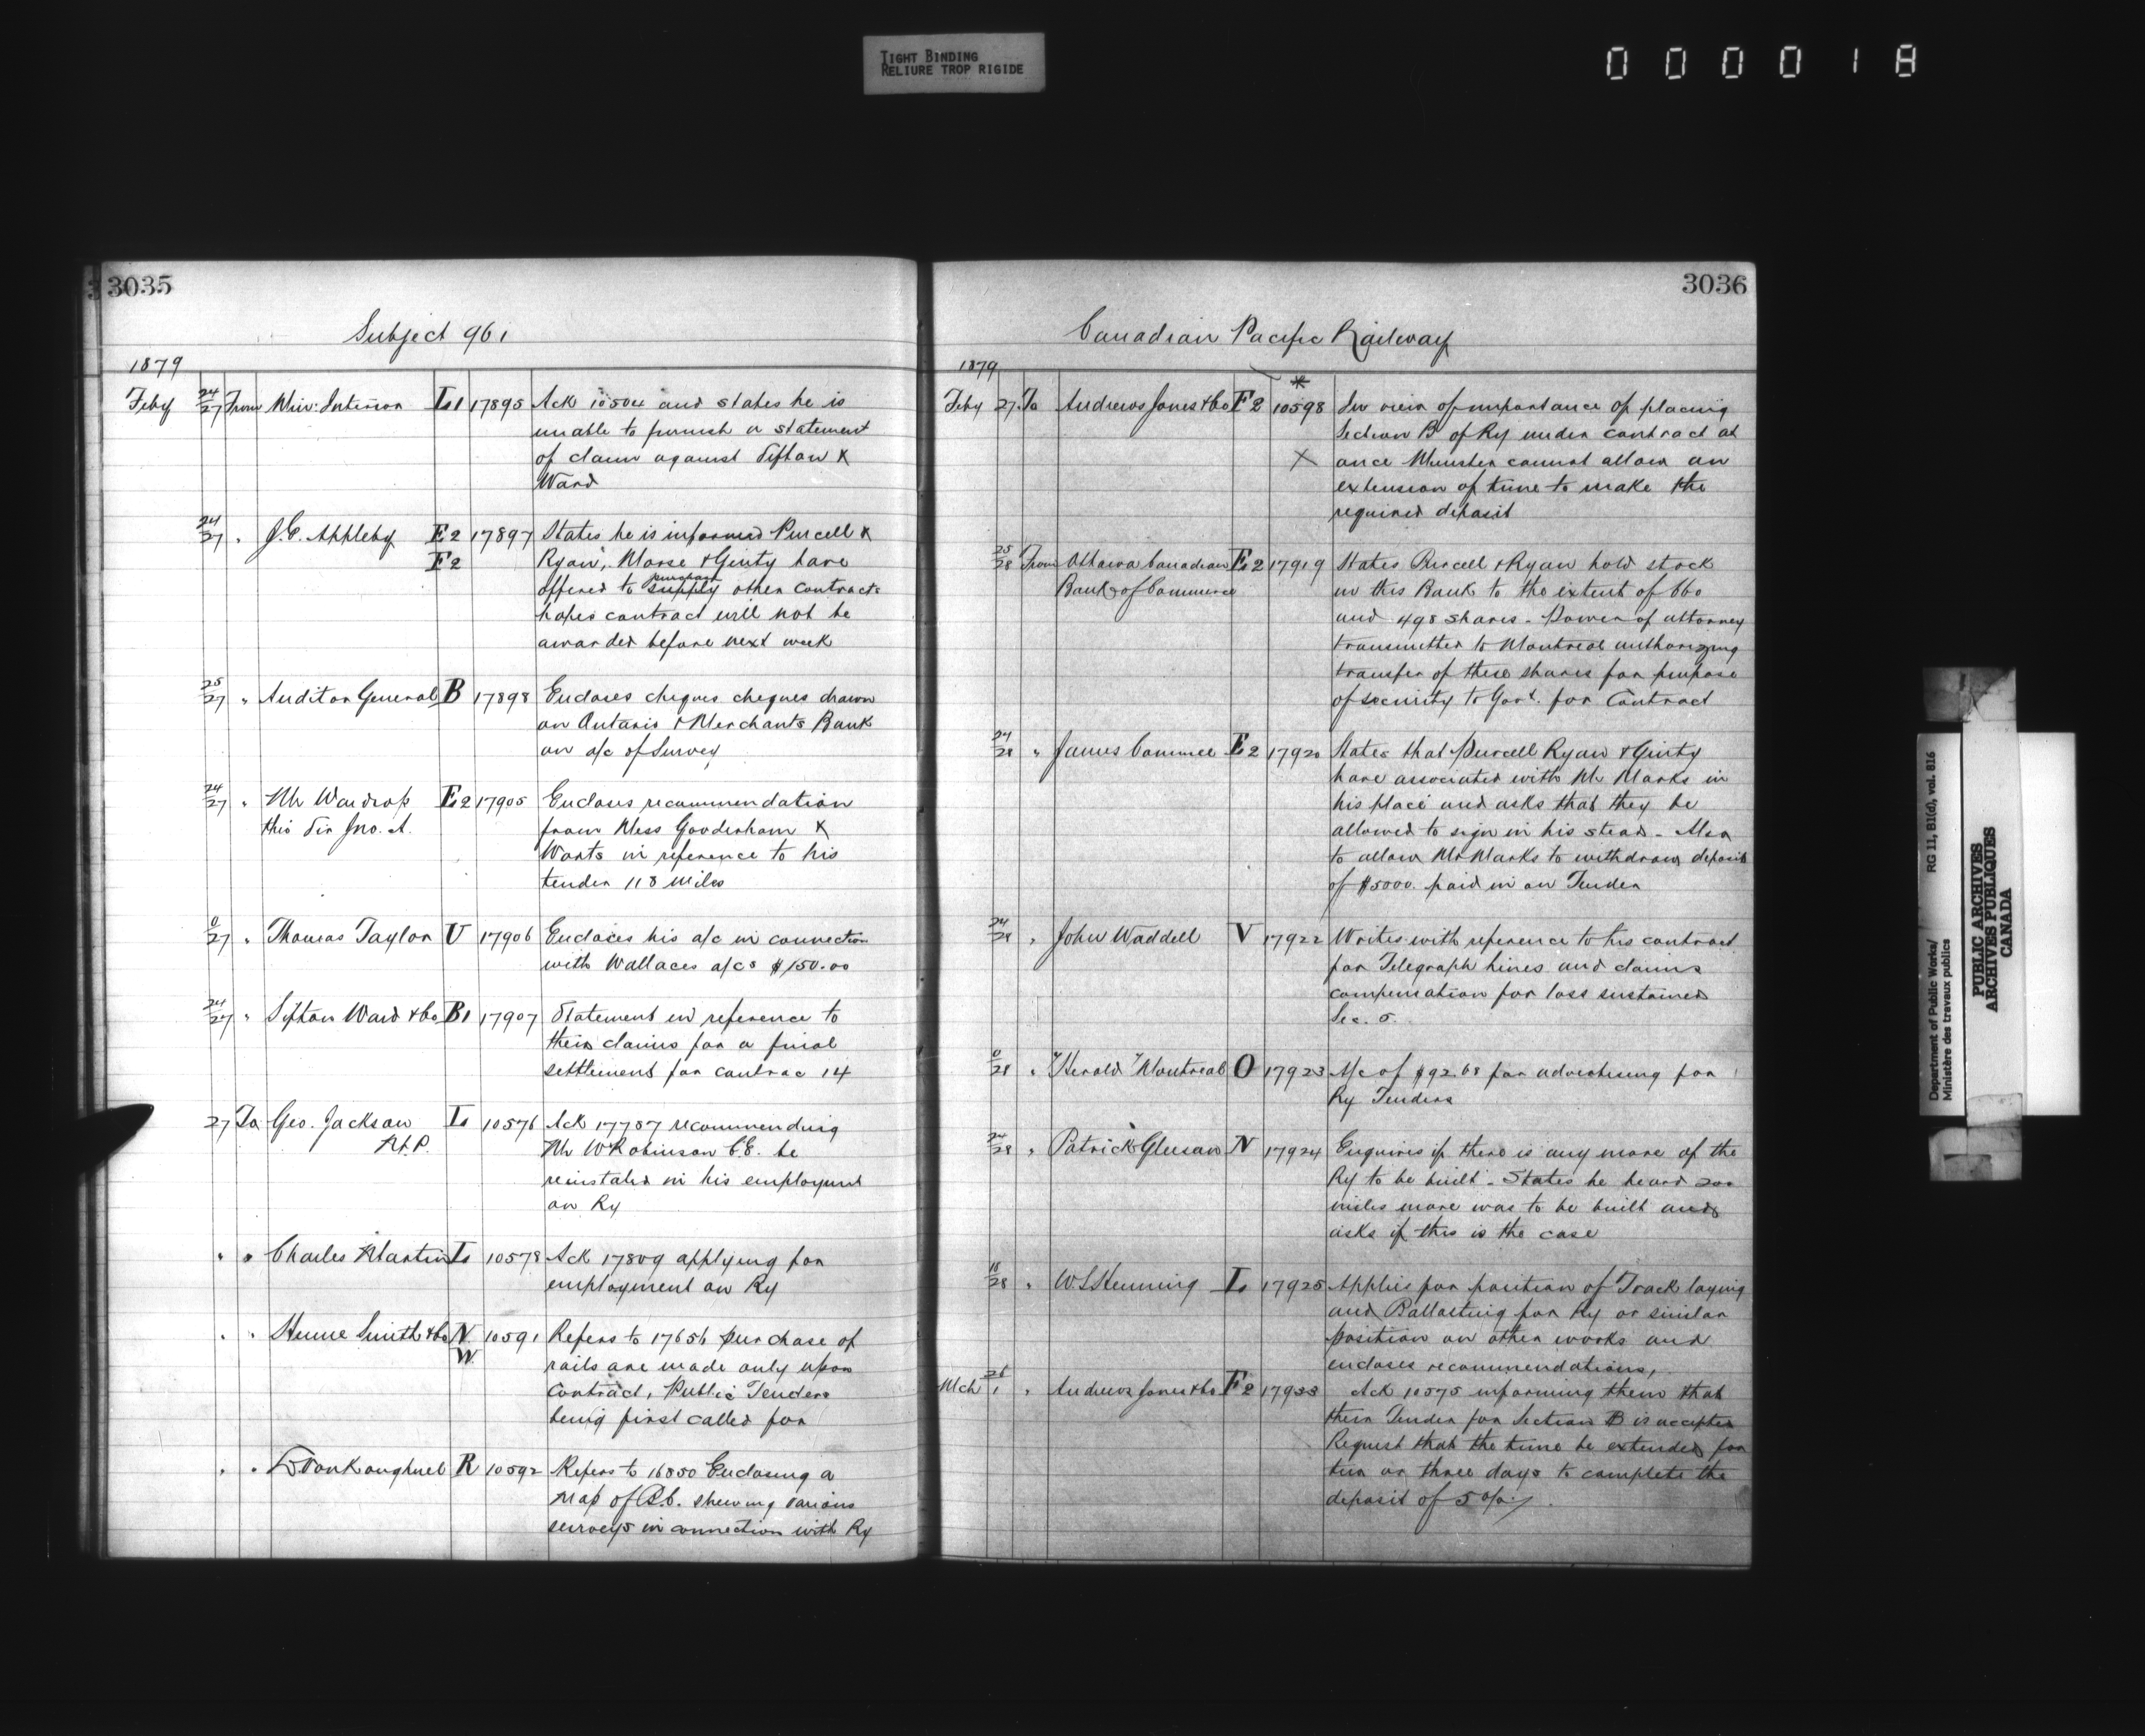 TIGHT BINDING
RELIURE TROP RIGIDE
000018
3035
Subject 961
1879
Feby 24/27 From Min: Interior L1 17895 Ack 10504 and states he is
unable to furnish a statement
of claim against Sifton &
Ward
24/27 " J.E. Appleby E2 17897 States he is informed Purcell &
F2 Ryan, Morse & Ginty have
purchase
offered to supply other contracts
hopes contract will not be
awarded before next week
25/27 " Auditor General B 17898 Encloses cheques cheques drawn
on Ontario & Merchants Bank
on a/c of Survey
24/27 " Mr Wardrop E2 17905 Encloses recommendation
thro Sir Jno. A. from Mess Gooderham &
Worts in reference to his
tender 118 miles
0/27 " Thomas Taylor U 17906 Encloses his a/c in connection
with Wallaces a/cs $150.00
24/27 " Sifton Ward & Co B1 17907 Statement in reference to
their claims for a final
settlement for contrac 14
27 To Geo. Jackson L 10576 Ack 17787 recommending
M.P. Mr W Robinson C.E. be
reinstated in his employment
on Ry
" " Charles Martin L 10578 Ack 17809 applying for
employment on Ry
" " Hume Smith & Co N 10591 Refers to 17656 purchase of
W. rails are made only upon
Contract, Public Tenders
being first called for
" " VanKoughnet R 10592 Refers to 16850 Enclosing a
Map of B.C. shewing various
surveys in connection with Ry
3036
Canadian Pacific Railway
1879
Feby 27 To Andrews Jones & Co F2 10598 In view of importance of placing
Section B of Ry under contract at
X once Minister cannot allow an
extension of time to make the
required deposit
25/28 From Ottawa Canadian E2 17919 States Purcell & Ryan hold stock
Bank of Commerce in this Bank to the extent of 660
and 498 shares - Power of attorney
transmitted to Montreal authorizing
transfer of these shares for purpose
of security to Govt. for Contract
24/28 " James Conmee E2 17920 States that Purcell Ryan & Ginty
have associated with Mr Marks in
his place and asks that they be
allowed to sign in his stead - Also
to allow Mr Marks to withdraw deposit
of $5000. paid in on Tender
24/28 " John Waddell V 17922 Writes with reference to his contract
for Telegraph lines and claims
compensation for loss sustained
Sec. 5.
0/28 " "Herald" Montreal O 17923 A/c of $92.68 for advertising for
Ry Tenders
24/28 " Patrick Gleeson N 17924 Enquires if there is any more of the
Ry to be built - States he heard 200
miles more was to be built and
asks if this is the case
18/28 " W L Henning L 17925 Applies for position of Track laying
and Ballasting for Ry or similar
position on other works and
encloses recommendations,
Mch 26/1 " Andrews Jones & Co F2 17933 Ack 10575 informing them that
their Tender for Section B is accepted
Request that the time be extended for
two or three days to complete the
deposit of 5 o/o.
Department of Public Works/ RG 11, B1(d), vol. 816
Ministère des travaux publics
PUBLIC ARCHIVES
ARCHIVES PUBLIQUES
CANADA